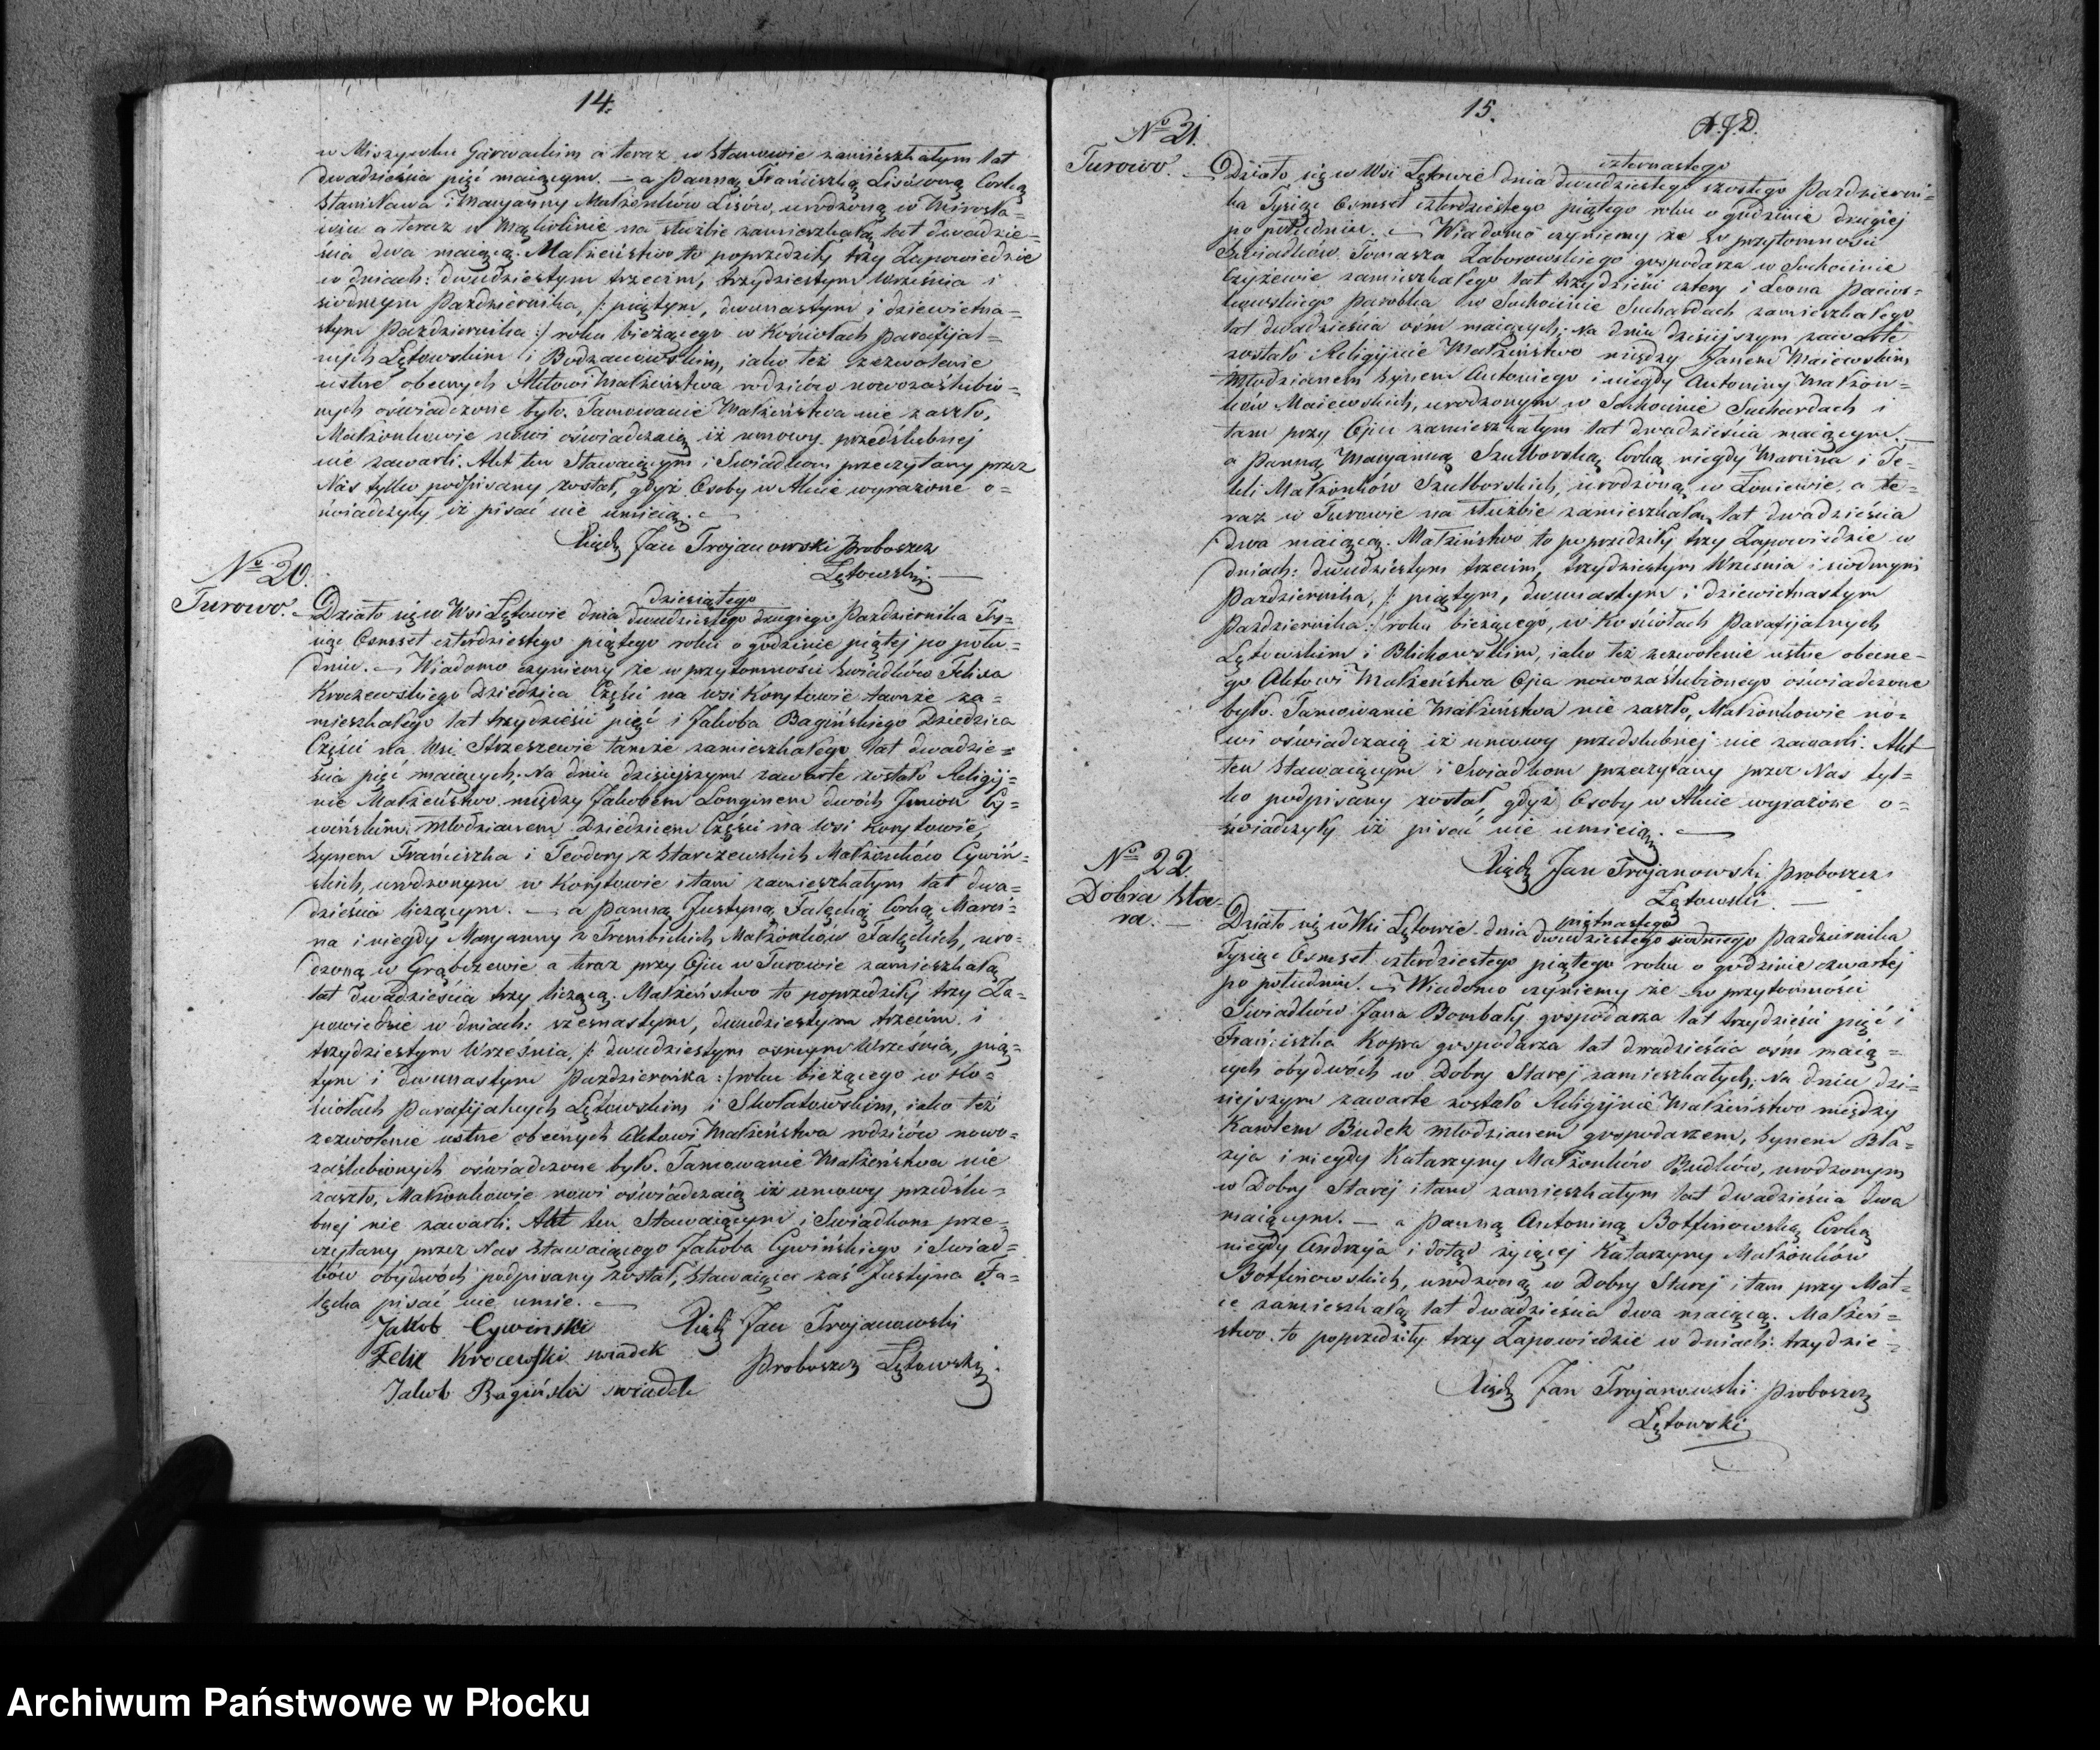 14.
w Miszewku Garwackim a teraz w Stanowie zamieszkałym lat
dwadzieścia pięć maiącym. — a Panną Franciszką Lisówną Corką
Stanisława i Maryanny Małżonków Lisów, urodzoną w
a teraz w na służbie zamieszkałą lat dwadzie=
ścia dwa maiącą. Małżeństwo to poprzedziły trzy Zapowiedzie
w dniach: dwudziestym trzecim, trzydziestym Września i
siódmym Października, /: piątym, dwunastym i dziewietna=
stym Października :/ roku bieżącego w Kościołach Parafijal=
nych Łętowskim i Bodzanowskim, iako też zezwolenie
ustne obecnych Aktowi Małżeństwa rodziców nowozaślubio=
nych oświadczone było. Tamowanie Małżeństwa nie zaszło,
Małżonkowie nowi oświadczaią iż umowy przedślubnej
nie zawarli. Akt ten Stawaiącym i Swiadkom przeczytany przez
Nas tylko podpisany został, gdyż Osoby w Akcie wyrażone o=
świadczyły iż pisać nie umieią.
Xiądz Jan Trojanowski Proboszcz
Łętowski. —
No 20.
Turowo. —
dziesiątego
Działo się w Wsi Łętowie dnia dwudziestego drugiego Października Ty=
siąc Osmset czterdziestego piątego roku o godzinie piątej po połu=
dniu. — Wiadomo czyniemy że w przytomności Swiadków Felixa
Kroczewskiego Dziedzica Części na wsi Korytowie tamże za=
mieszkałego lat trzydzieści pięć i Jakoba Bagińskiego Dziedzica
Części na Wsi Strzeszewie tamże zamieszkałego lat dwadzie=
ścia pięć maiących; Na dniu dzisiejszym zawarte zostało Religij=
nie Małżeństwo między Jakobem Longinem dwóch Jmion Cy=
wińskim Młodzianem Dziedzicem Części na wsi Korytowie,
Synem Franciszka i Teodory z Starczewskich Małżonków Cywiń=
skich, urodzonym w Korytowie i tam zamieszkałym lat dwa=
dzieścia liczącym. — a Panną Justyną Fałęcką Corką Marci=
na i niegdy Maryanny z Trembickich Małżonków Fałęckich, uro=
dzoną w Grąbczewie a teraz przy Ojcu w Turowie zamieszkałą
lat dwadzieścia trzy liczącą. Małżeństwo to poprzedziły trzy Za=
powiedzie w dniach: szesnastym, dwudziestym trzecim i
trzydziestym Września, /: dwudziestym osmym Września, pią=
tym i dwunastym Października :/ roku bieżącego w Ko=
ściołach Parafijalnych Łętowskim i Skołatowskim, iako też
zezwolenie ustne obecnych Aktowi Małżeństwa rodziców nowo=
zaślubionych oświadczone było. Tamowanie Małżeństwa nie
zaszło, Małżonkowie nowi oświadczaią iż umowy przedślu=
bnej nie zawarli. Akt ten Stawaiącym i Swiadkom prze=
czytany przez Nas Stawaiącego Jakoba Cywińskiego i Swiad=
ków obydwóch podpisany został, Stawaiąca zaś Justyna Fa=
łęcka pisać nie umie. —
Jakób Cywinski Xiądz Jan Trojanowski
Felix Krocewski swiadek Proboszcz Łętowski.
Jakub Bagiński swiadek
15.
No 21.
Turowo. —
czternastego
Działo się w Wsi Łętowie dnia dwudziestego szóstego Październi=
ka Tysiąc Osmset czterdziestego piątego roku o godzinie drugiej
po południu. — Wiadomo czyniemy że w przytomności
Swiadków Tomasza Zaborowskiego gospodarza w Sochocinie
Czyżewie zamieszkałego lat trzydzieści cztery i Leona Pacior=
kowskiego parobka w Sochocinie Suchardach zamieszkałego
lat dwadzieścia ośm maiących; Na dniu dzisiejszym zawarte
zostało Religijnie Małżeństwo między Janem Maiewskim
Młodzianem Synem Antoniego i niegdy Antoniny Małżon=
ków Maiewskich, urodzonym w Sochocinie Suchardach i
tam przy Ojcu zamieszkałym lat dwadzieścia maiącym. —
a Panną Maryanną Szulborską Corką niegdy Marcina i Te=
kli Małżonków Szulborskich, urodzoną w Łoniewie, a te=
raz w Turowie na służbie zamieszkałą, lat dwadzieścia
dwa maiącą. Małżeństwo to poprzedziły trzy Zapowiedzie w
dniach: dwudziestym trzecim, trzydziestym Września i siódmym
Października, /: piątym, dwunastym i dziewietnastym
Października :/ roku bieżącego, w Kościołach Parafijalnych
Łętowskim i Blichowskim, iako też zezwolenie ustne obecne=
go Aktowi Małżeństwa Ojca nowozaślubionego oświadczone
było. Tamowanie Małżeństwa nie zaszło, Małżonkowie no=
wi oświadczaią iż umowy przedślubnej nie zawarli. Akt
ten Stawaiącym i Swiadkom przeczytany przez Nas tyl=
ko podpisany został, gdyż Osoby w Akcie wyrażone o=
świadczyły iż pisać nie umieią. —
Xiądz Jan Trojanowski Proboszcz
Łętowski. —
No 22.
Dobra Sta=
ra. —
piętnastego
Działo się w Wsi Łętowie dnia dwudziestego siódmego Października
Tysiąc Osmset czterdziestego piątego roku o godzinie czwartej
po południu. — Wiadomo czyniemy że w przytomności
Swiadków Jana Bombały gospodarza lat trzydzieści pięć i
Franciszka Kopra gospodarza lat dwadzieścia ośm maią=
cych obydwóch w Dobry Starej zamieszkałych; Na dniu dzi=
siejszym zawarte zostało Religijnie Małżeństwo między
Karolem Budek Młodzianem gospodarzem, Synem Bła=
żeja i niegdy Katarzyny Małżonków Budków, urodzonym
w Dobry Starej i tam zamieszkałym lat dwadzieścia dwa
maiącym. — a Panną Antoniną Bottinowską Corką
niegdy Andrzeja i dotąd żyiącej Katarzyny Małżonków
Bottinowskich, urodzoną w Dobry Starej i tam przy Mat=
ce zamieszkałą lat dwadzieścia dwa maiącą. Małżeń=
stwo to poprzedziły trzy Zapowiedzie w dniach: trzydzie=
Xiądz Jan Trojanowski Proboszcz
Łętowski
Archiwum Państwowe w Płocku